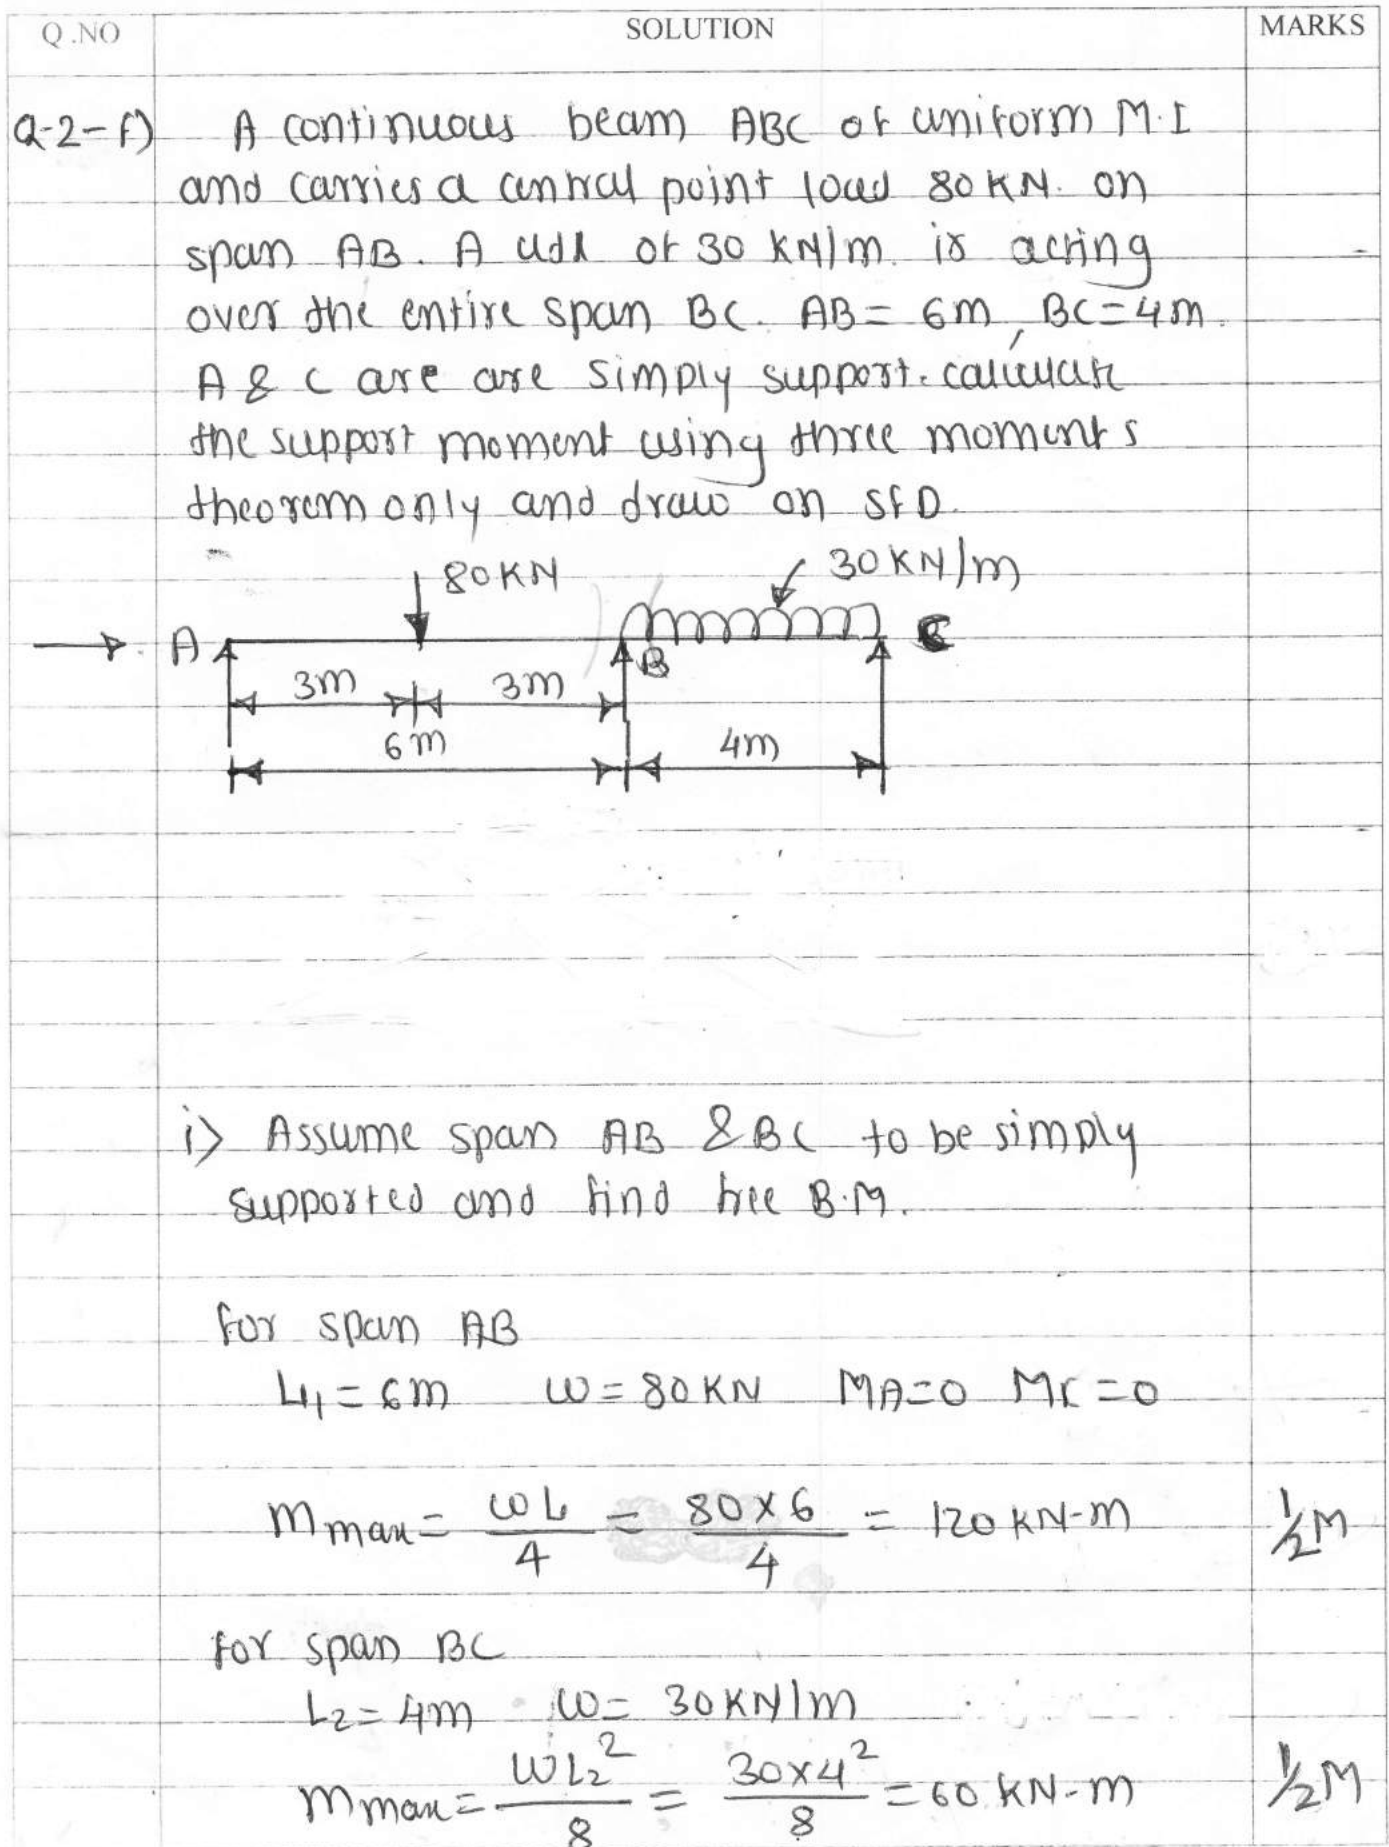 Q.NO SOLUTION MARKS
Q-2-f) A continuous beam ABC of uniform M.I
and carries a central point load 80 KN. on
span AB. A udl of 30 KN/m. is acting
over the entire span BC. AB = 6m, BC = 4m.
A & C are are simply support. calculate
the support moment using three moments
theorem only and draw on SFD.
80KN 30KN/m
A B C
3m 3m
6m 4m
i) Assume span AB & BC to be simply
supported and find free B.M.
for span AB
L1 = 6m W = 80KN MA=0 MC=0
Mmax = WL/4 = 80×6/4 = 120 KN-m 1/2M
for span BC
L2 = 4m W = 30KN/m
Mmax = WL2²/8 = 30×4²/8 = 60 KN-m 1/2M